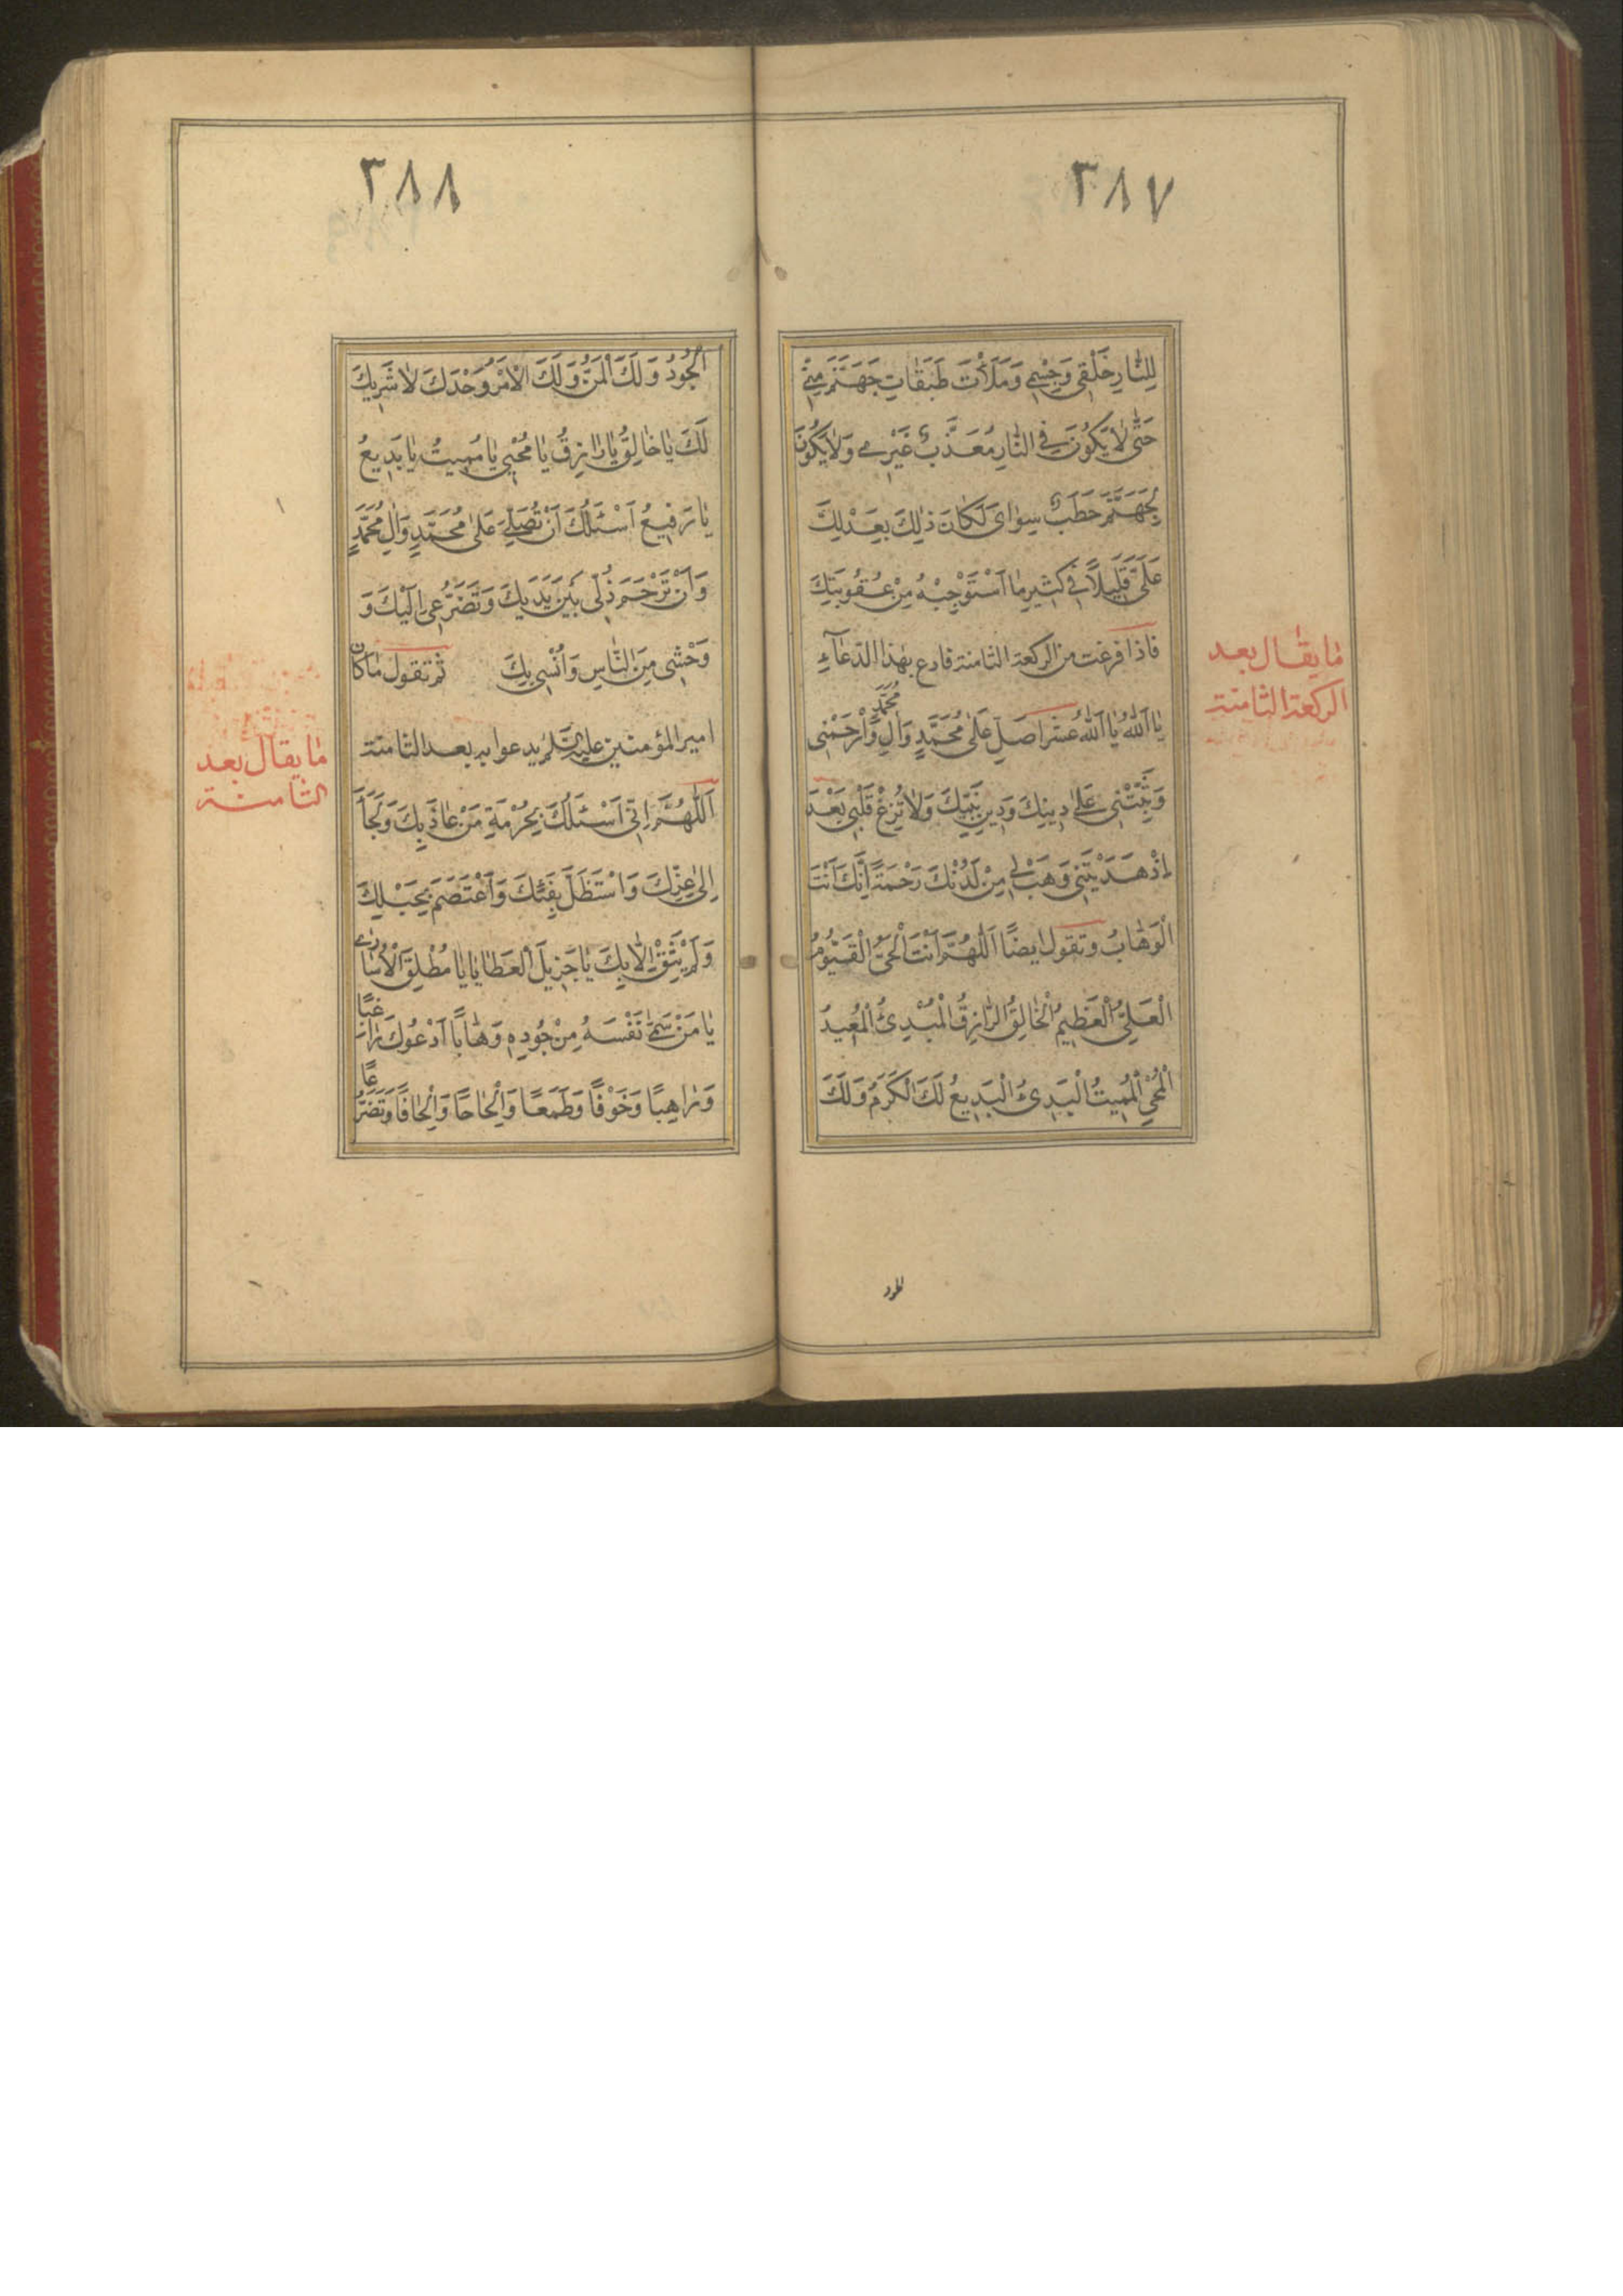 ٣٨٧
لِلنّٰارِ خَلْقِى وَجِسْمِى وَمَلَأْتَ طَبَقٰاتِ جَهَنَّمَ مِنّٖى
حَتّٰى لٰا يَكُونَ فِى النّٰارِ مُعَذَّبٌ غَيْرِى وَلٰا يَكُونَ
لِجَهَنَّمَ حَطَبٌ سِوٰاىَ لَكٰانَ ذٰلِكَ بِعَدْلِكَ
عَلَىَّ قَلِيلًا فِى كَثِيرِ مٰا اَسْتَوْجِبُهُ مِنْ عُقُوبَتِكَ
فاذا فرغت من الركعة الثامنة فادع بهٰذا الدّعٰآءِ
يٰا اَللّٰهُ يٰا اَللّٰهُ عشرا صَلِّ عَلىٰ مُحَمَّدٍ وَاٰلِ مُحَمَّدٍ وَارْحَمْنِى
وَثَبِّتْنِى عَلىٰ دِينِكَ وَدِينِ نَبِيِّكَ وَلٰا تُزِغْ قَلْبِى بَعْدَ
اِذْ هَدَيْتَنِى وَهَبْ لِى مِنْ لَدُنْكَ رَحْمَةً اِنَّكَ اَنْتَ
الْوَهّٰابُ وتقول ايضًا اَللّٰهُمَّ اَنْتَ الْحَىُّ الْقَيُّومُ
الْعَلِىُّ الْعَظِيمُ الْخٰالِقُ الرّٰازِقُ الْمُبْدِئُ الْمُعِيدُ
الْمُحْيِى الْمُمِيتُ الْبَدِىءُ الْبَدِيعُ لَكَ الْكَرَمُ وَلَكَ
مٰا يقٰال بعد
الركعة الثامنة
٣٨٨
الْجُودُ وَلَكَ الْمَنُّ وَلَكَ الْاَمْرُ وَحْدَكَ لٰا شَرِيكَ
لَكَ يٰا خٰالِقُ يٰا رٰازِقُ يٰا مُحْيِى يٰا مُمِيتُ يٰا بَدِيعُ
يٰا رَفِيعُ اَسْئَلُكَ اَنْ تُصَلِّىَ عَلىٰ مُحَمَّدٍ وَاٰلِ مُحَمَّدٍ
وَاَنْ تَرْحَمَ ذُلّٖى بَيْنَ يَدَيْكَ وَتَضَرُّعِى اِلَيْكَ وَ
وَحْشَتِى مِنَ النّٰاسِ وَاُنْسِى بِكَ ثم تقول مٰا كان
امير المؤمنين عليه السّلم يدعوا به بعد الثامنة
اَللّٰهُمَّ اِنّٖى اَسْئَلُكَ بِحُرْمَةِ مَنْ عٰاذَ بِكَ وَلَجَأَ
اِلىٰ عِزِّكَ وَاسْتَظَلَّ بِفَيْئِكَ وَاعْتَصَمَ بِحَبْلِكَ
وَلَمْ يَثِقْ اِلّٰا بِكَ يٰا جَزِيلَ الْعَطٰايٰا يٰا مُطْلِقَ الْاُسٰارىٰ
يٰا مَنْ سَمّٰى نَفْسَهُ مِنْ جُودِهٖ وَهّٰابًا اَدْعُوكَ رٰاغِبًا
وَرٰاهِبًا وَخَوْفًا وَطَمَعًا وَاِلْحٰاحًا وَاِلْحٰافًا وَتَضَرُّعًا
مٰا يقال بعد
الثامنة